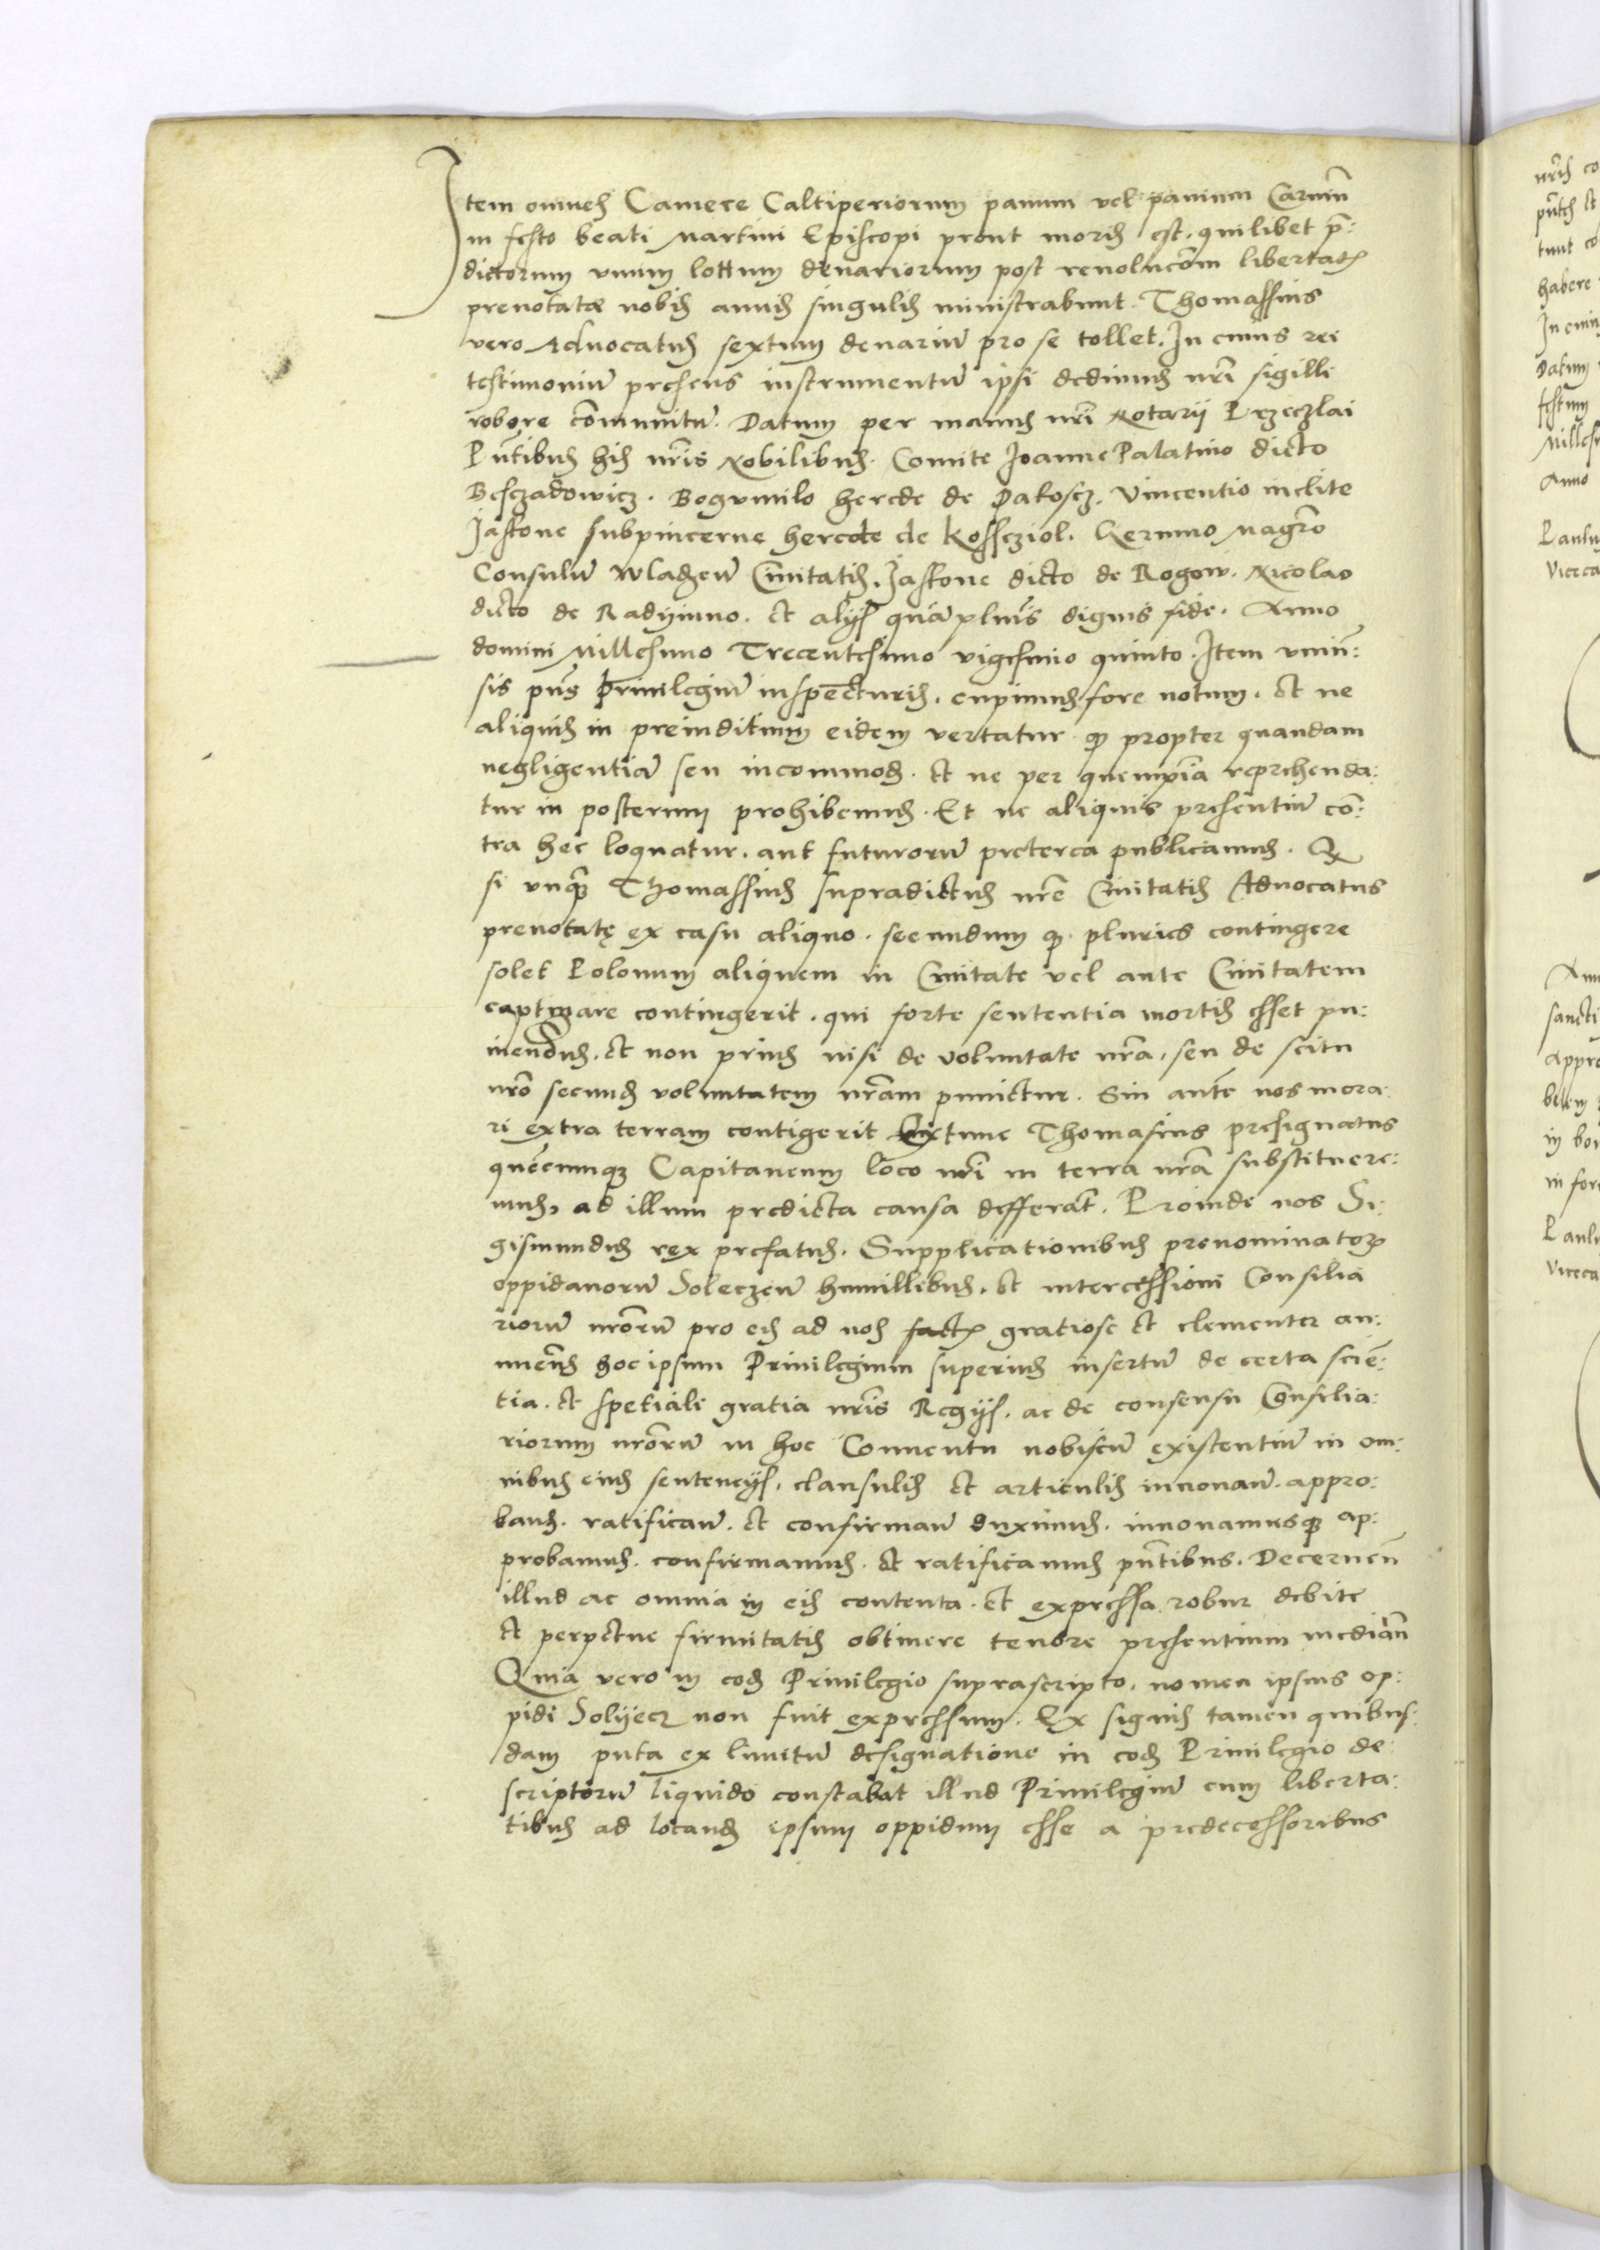 Item omnes Camere Caltiperiorum panum vel panium Carnium
in festo beati Martini Episcopi prout moris est. quilibet pre:
dictorum vnum lottum denariorum post reuolucom̄ libertatis
prenotatæ nobis annis singulis ministrabunt. Thomassius
vero Aduocatus sextum denariū pro se tollet. In cuius rei
testimoniū presens instrumentū ipsi dedimus nr̄i sigilli
robore cōmunitū. Datum per manus nr̄i Notarii Przeczlai
Pn̄tibus his nr̄is Nobilibus. Comite Joanne Palatino dicto
Besczadowicz. Bogumilo herede de Pakoscz. Vincentio inclite
Jaskone subpincerne herede de Kossczial. Herinno Magr̄o
Consulū Wladzeū Ciuitatis. Jaskone dicto de Rogow. Nicolao
dicto de Radyimno. et alijs quāplur̄is dignis fide. Anno
domini Millesimo Trecentesimo vigesimo quinto. Item vniū:
sis pn̄s priuilegiū inspecturis. cupimus fore notum. et ne
aliquis in preiuditium eidem vertatur qp propter quandam
negligentiā seu incommod. et ne per quempiā reprehenda:
tur in posterum prohibemus. Et ne aliquis presentiū cō:
tra hec loquatur. aut futurorū preterea publicamus. Qp
si vnq̄ Thomassius supradictus nr̄e Ciuitatis Aduocatus
prenotatę ex casu aliquo. secundum qp pluries contingere
solet Polonum aliquem in Ciuitate vel ante Ciuitatem
captiuare contingerit. qui forte sententia mortis esset pu:
niendus. et non prius nisi de voluntate nr̄a, seu de scitu
nr̄o secund voluntatem nr̄am punietur. Sin autē nos mora:
ri extra terram contigerit Extunc Thomasius presignatus
quēcunq Capitaneum loco nr̄i in terra nr̄a substituere:
mus, ad illum predicta causa defferāt. Proinde nos Si:
gismundus rex prefatus. Supplicationibus prenominatorum
oppidanorū Soleczeū humillibus. et intercessioni Consilia
riorū nr̄orū pro eis ad nos factis gratiose et clementer an:
nuen̄s hoc ipsum Priuilegium superius insertū de certa sciē:
tia. et spetiali gratia nr̄is Regijs. ac de consensu Consilia:
riorum nr̄orū in hoc Conuentu nobiscū existentiū in om:
nibus eius sentencijs, clausulis et articulis innouan̄. appro:
band. ratifican̄. et confirman̄ duximus. innouamusq ap:
probamus. confirmamus. et ratificamus pn̄tibus. Decernen̄
illud ac omnia in eis contenta. et expressa robur debite
et perpetue firmitatis obtinere tenore presentium median̄
Quia vero in eod Priuilegio suprascripto, nomen ipsius op:
pidi Solijecz non fuit expressum. Ex signis tamen quibus:
dam puta ex limitū designatione in eod Priuilegio de:
scriptorū liquido constabat illud Priuilegiū cum liberta:
tibus ad locand ipsum oppidum esse a predecessoribus